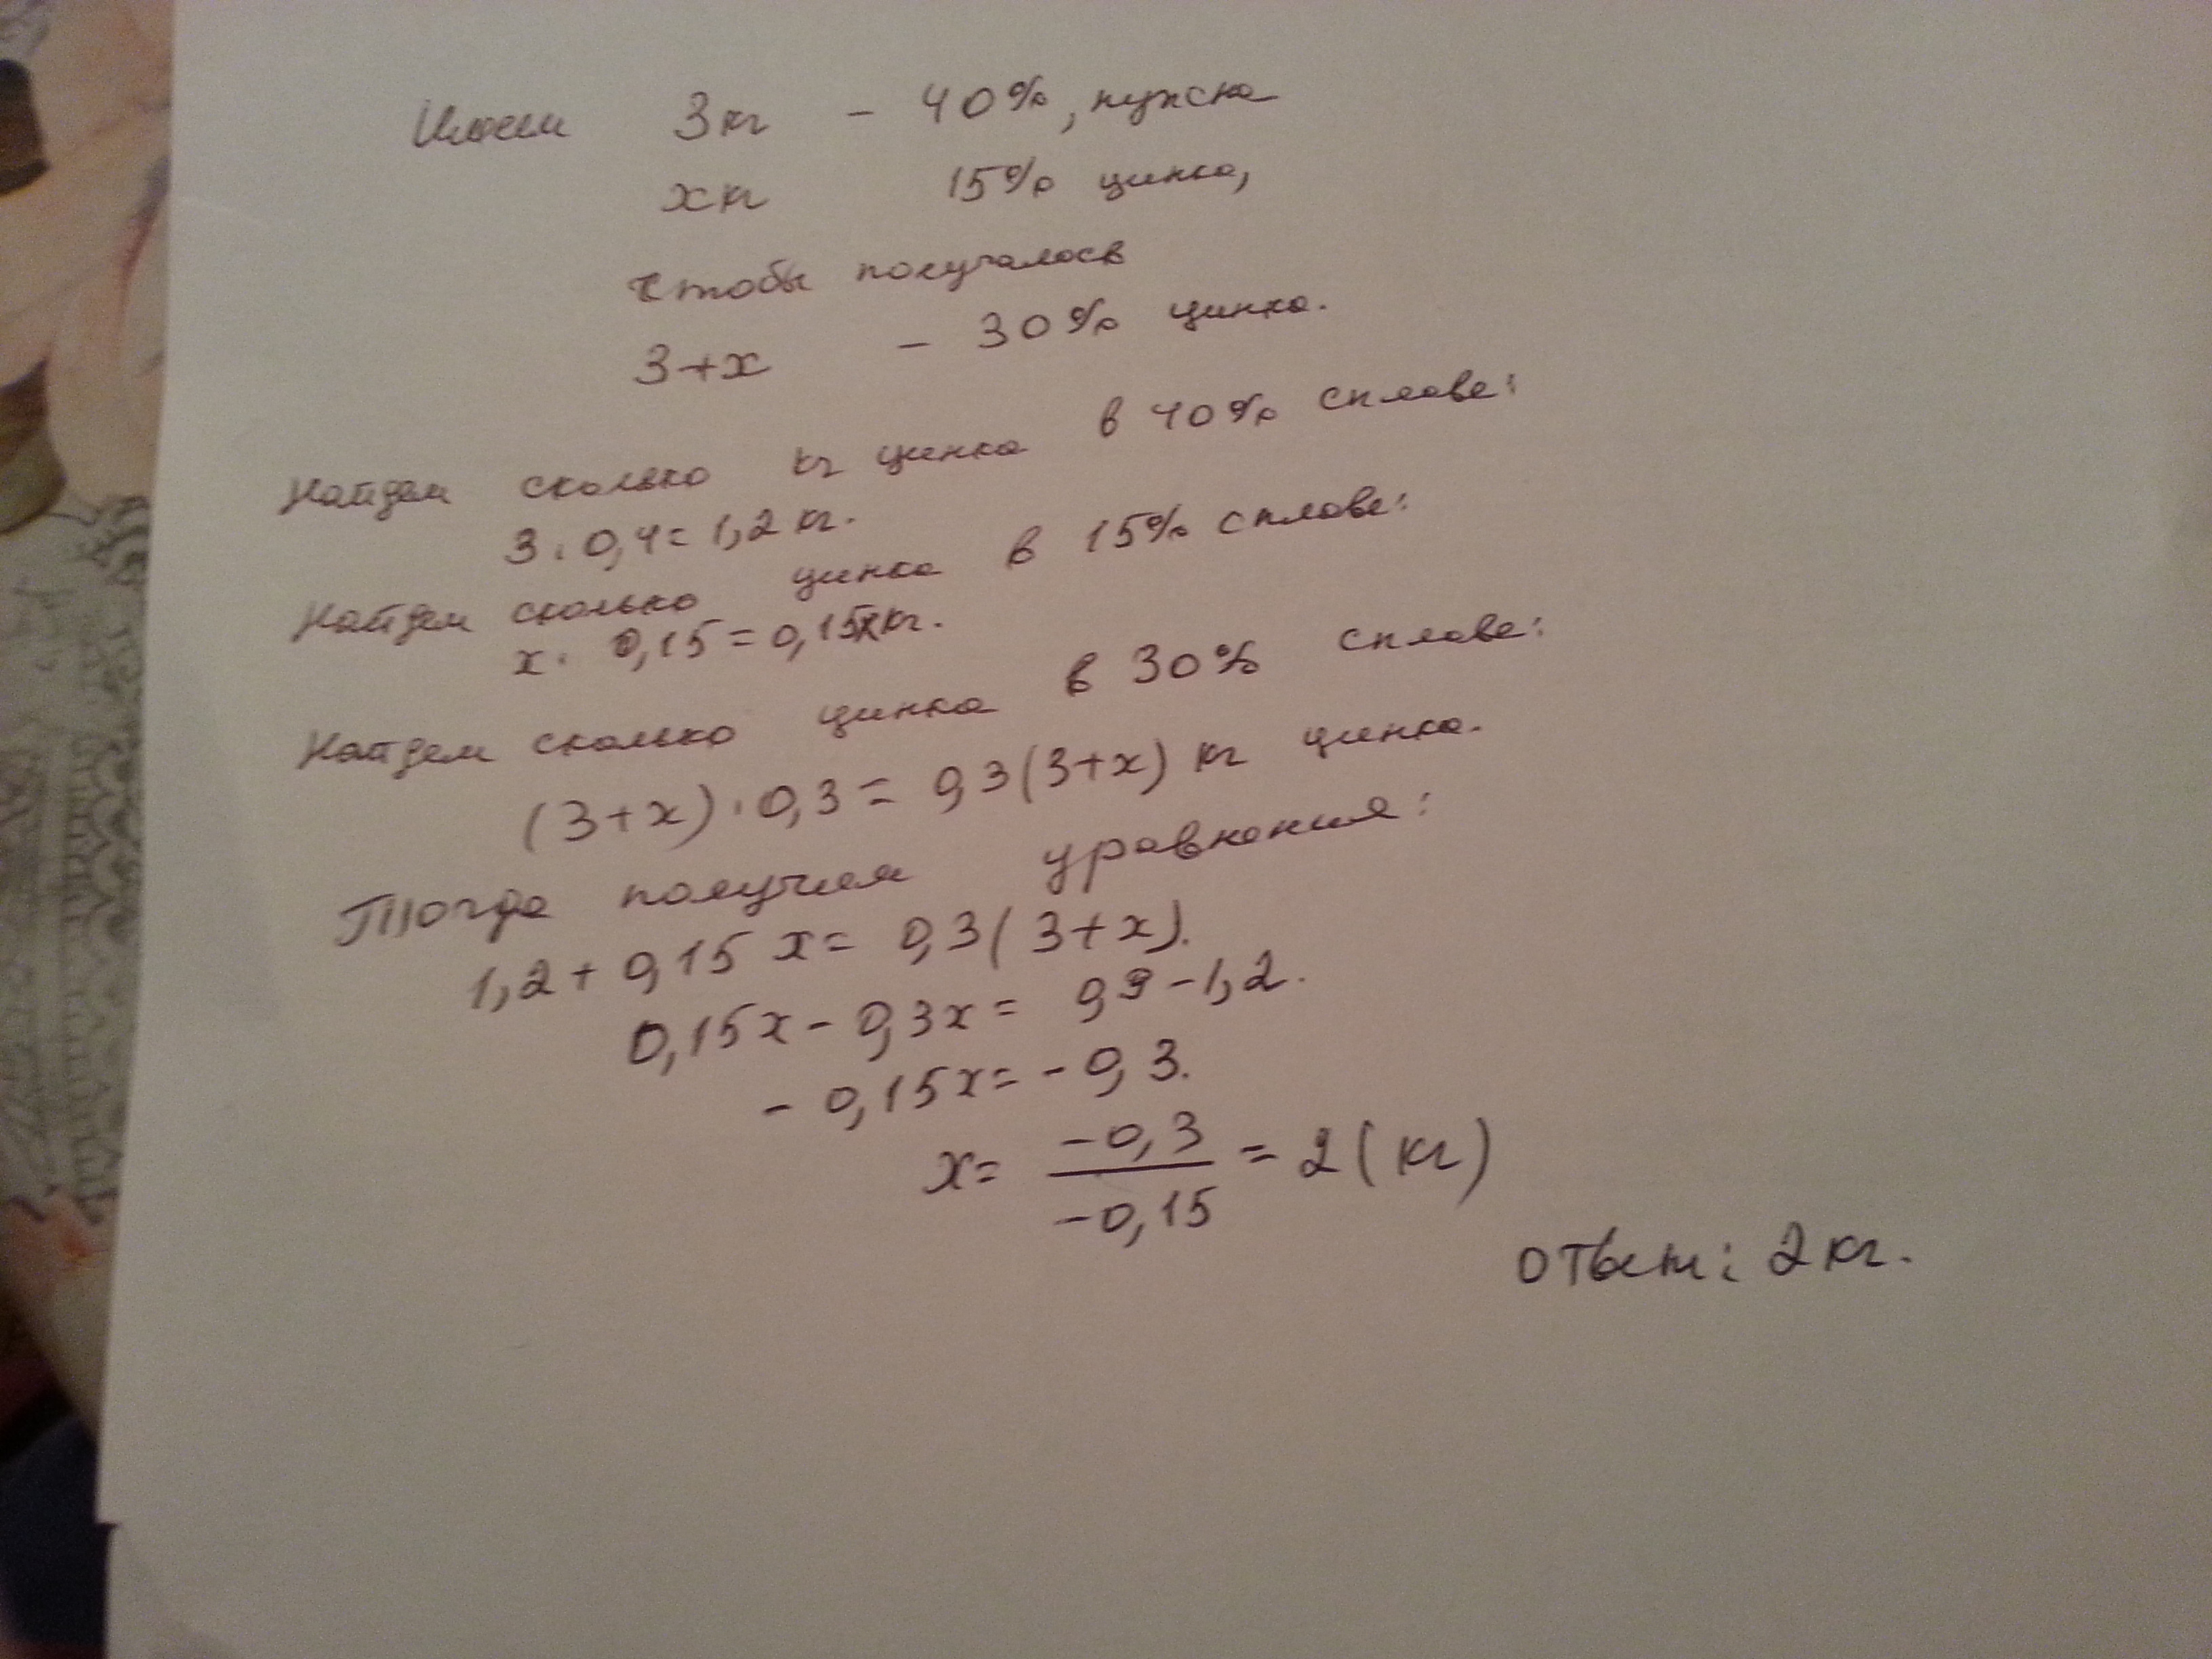 Имеем 3кг - 40%, нужна
хкг 15% цинка,
чтобы получалось
3+x - 30% цинка.
Найдем сколько кг цинка в 40% сплаве:
3·0,4=1,2кг.
Найдем сколько цинка в 15% сплаве:
x·0,15=0,15xкг.
Найдем сколько цинка в 30% сплаве:
(3+x)·0,3=0,3(3+x) кг цинка.
Тогда получим уравнения:
1,2+0,15x=0,3(3+x).
0,15x-0,3x=0,9-1,2.
-0,15x=-0,3.
x= -0,3/-0,15 = 2(кг)
Ответ: 2кг.